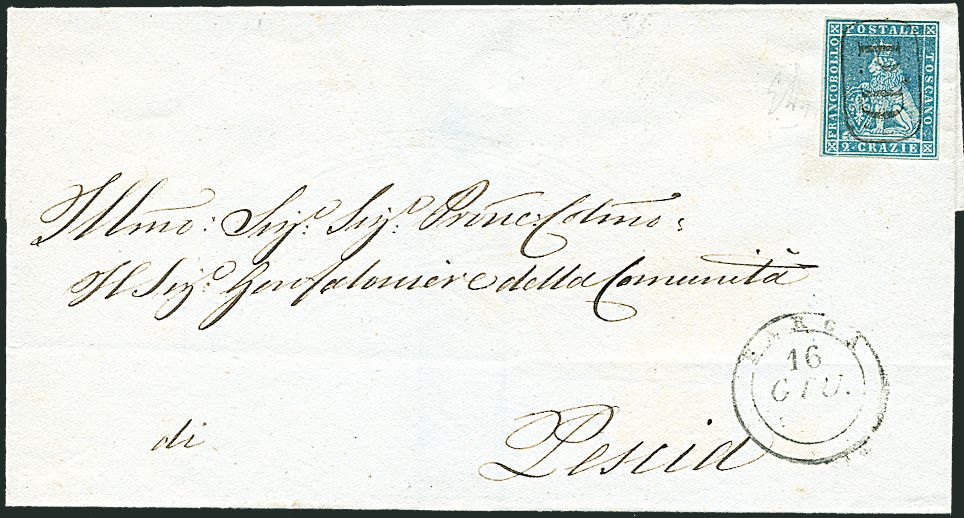 FRANCOBOLLO POSTALE TOSCANO
2 CRAZIE
P.D
Illmo: Sigr. Sigr. Prone Colmo:
Il Sigr. Gonfaloniere della Comunità
BARGA
16
GIU.
di Pescia